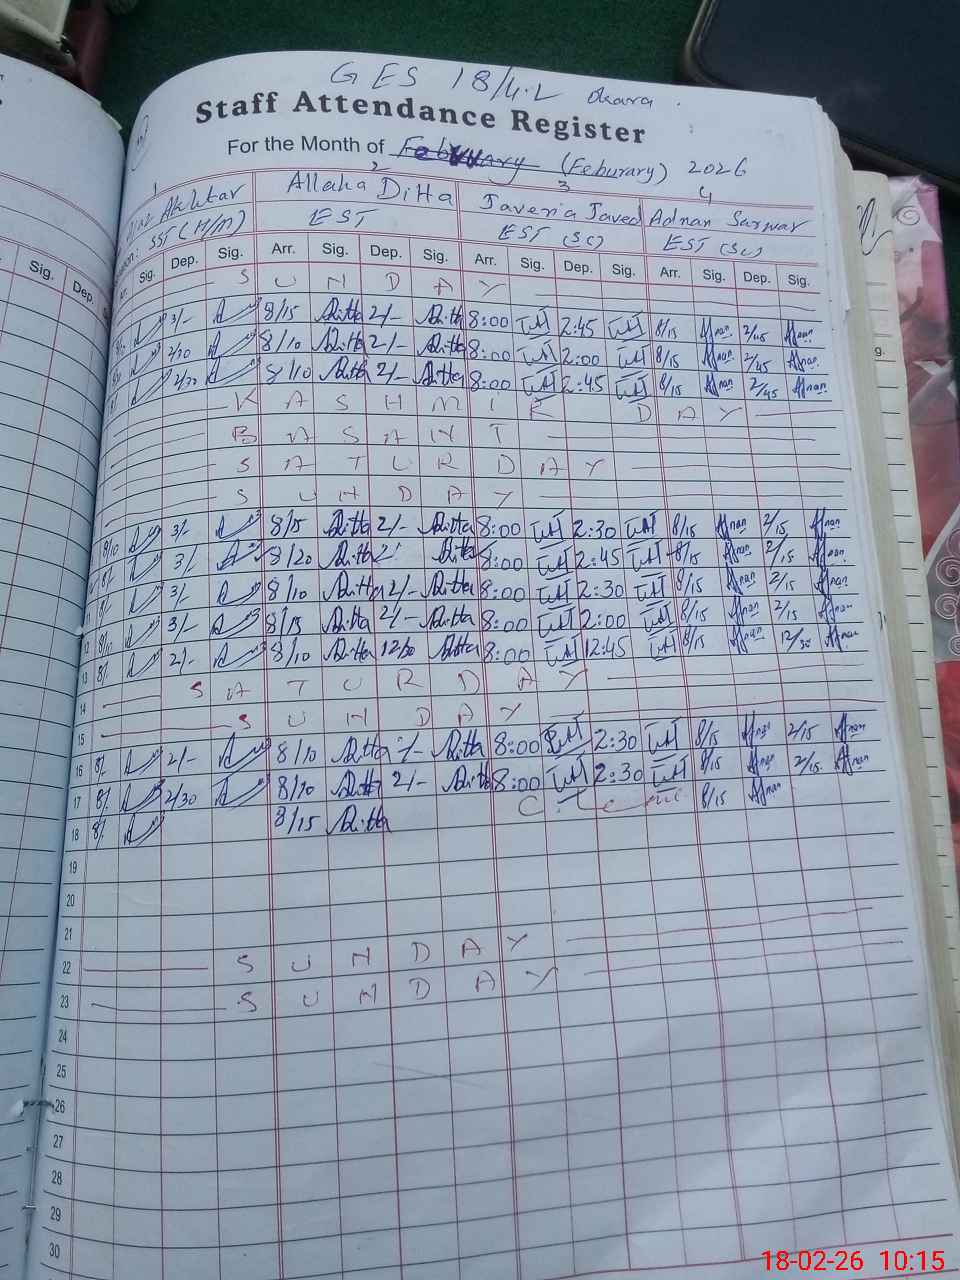 GES 18/4.L Okara.
Staff Attendance Register
For the Month of Feburary (Feburary) 2026
1 2 3 4
Akhtar Allaha Ditta Javeria Javed Adnan Sarwar
SST (H/M) EST EST (SC) EST (SC)
Sig. Dep. Sig. Arr. Sig. Dep. Sig. Arr. Sig. Dep. Sig. Arr. Sig. Dep. Sig.
Sig. Dep.
S U N D A Y
3/- 8/15 Ditta 2/- Ditta 8:00 2:45 8/15 Afnan 2/45 Afnan
2/20 8/10 Ditta 2/- Ditta 8:00 2:00 8/15 Afnan 2/45 Afnan
2/20 8/10 Ditta 2/- Ditta 8:00 2:45 8/15 Afnan 2/45 Afnan
K A S H M I R D A Y
B A S A N T
S A T U R D A Y
S U N D A Y
8/10 3/- 8/15 Ditta 2/- Ditta 8:00 2:30 8/15 Afnan 2/15 Afnan
8/- 3/- 8/20 Ditta 2 Ditta 8:00 2:45 8/15 Afnan 2/15 Afnan
8/- 3/- 8/10 Ditta 2/- Ditta 8:00 2:30 8/15 Afnan 2/15 Afnan
12 8/10 3/- 8/15 Ditta 2/- Ditta 8:00 2:00 8/15 Afnan 2/15 Afnan
13 8/- 2/- 8/10 Ditta 12/30 Ditta 8:00 12:45 8/15 Afnan 12/30 Afnan
14 S A T U R D A Y
15 S U N D A Y
16 8/- 2/- 8/10 Ditta 2/- Ditta 8:00 2:30 8/15 Afnan 2/15 Afnan
17 8/- 2/30 8/10 Ditta 2/- Ditta 8:00 2:30 8/15 Afnan 2/15 Afnan
18 8/- 8/15 Ditta C. Leave 8/15 Afnan
19
20
21
22 S U N D A Y
23 S U N D A Y
24
25
26
27
28
29
30
18-02-26 10:15